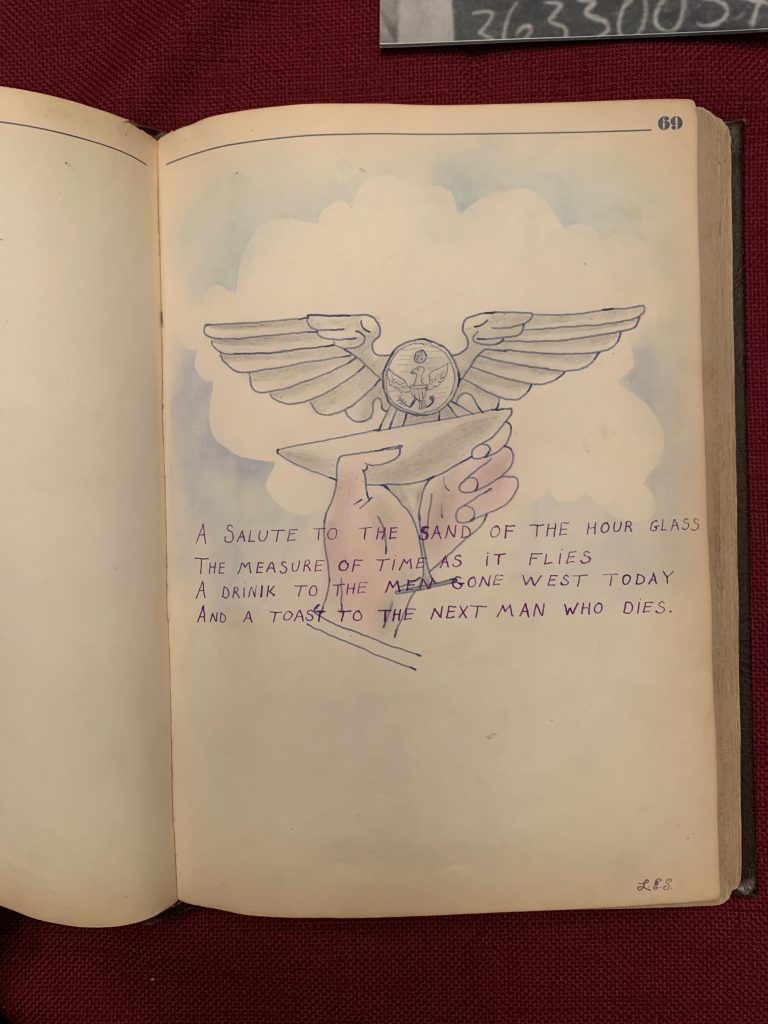 69
A SALUTE TO THE SAND OF THE HOUR GLASS
THE MEASURE OF TIME AS IT FLIES
A DRINIK TO THE MEN GONE WEST TODAY
AND A TOAST TO THE NEXT MAN WHO DIES.
L.E.S.